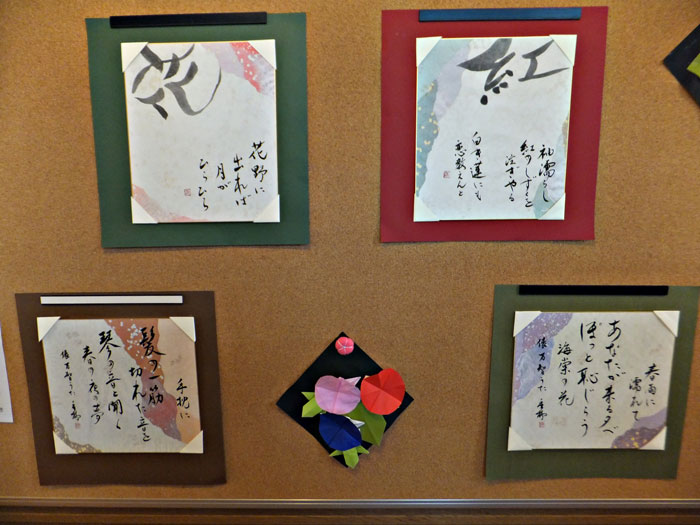 花
花野に
出れば
月が
紅
紅のしずくを
注ぎやる
白き蓮にも
恋教えんと
手枕に
髪の一筋
切れた音を
琴の音と聞く
春の夜の夢
俵万智うた
春雨に
濡れて
あなたが来る夕べ
ぽっと恥じらう
海棠の花
俵万智うた